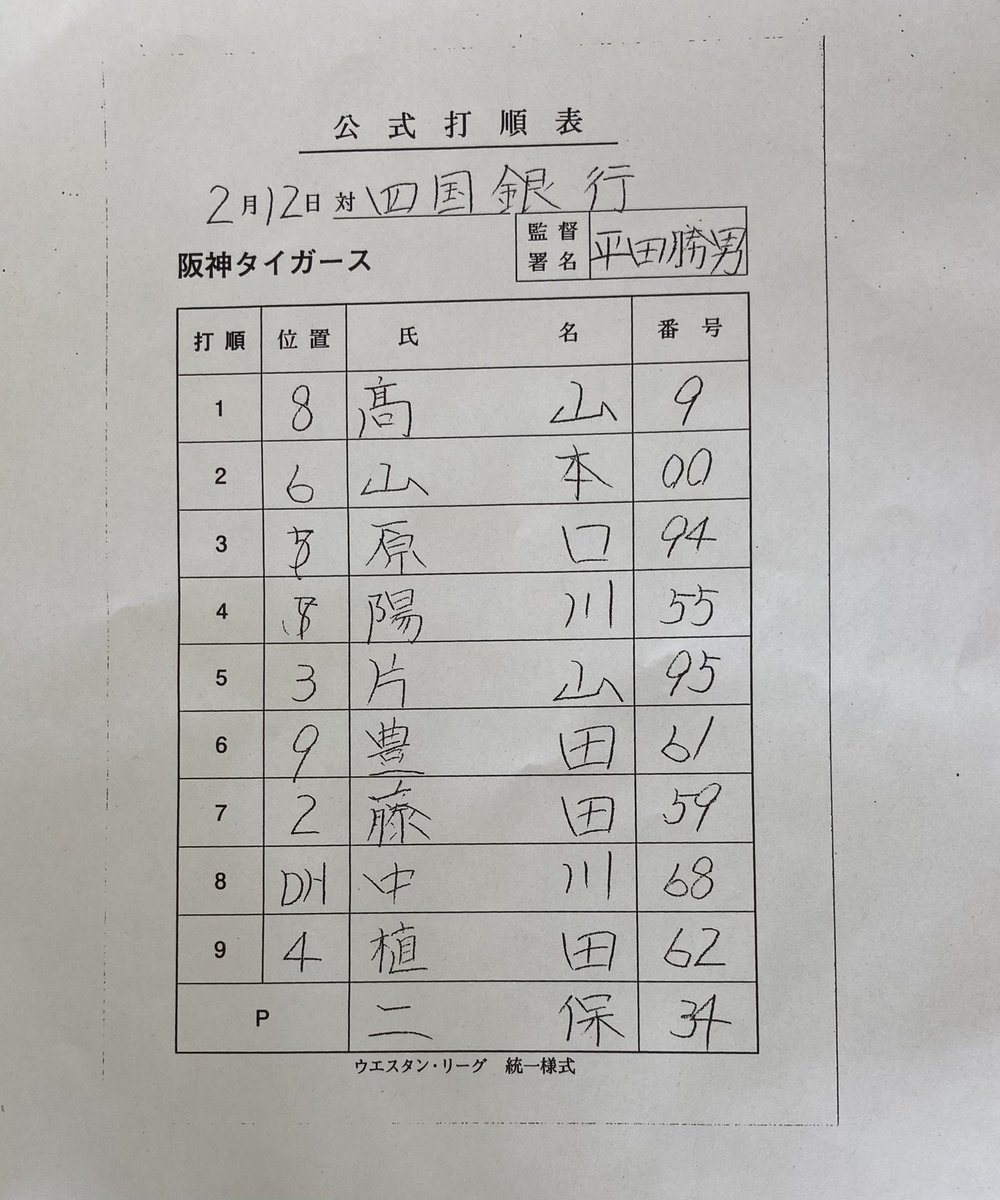 公式打順表
2月12日 対 四国銀行
監督署名 平田勝男
阪神タイガース
打順 位置 氏名 番号
1 8 髙山 9
2 6 山本 00
3 原口 94
4 陽川 55
5 3 片山 95
6 9 豊田 61
7 2 藤田 59
8 DH 中川 68
9 4 植田 62
P 二保 34
ウエスタン・リーグ 統一様式